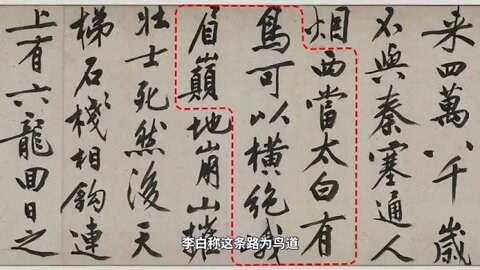 来四萬八千歳
不與秦塞通人
烟西當太白有
鳥可以横絶峨
眉巔地崩山摧
壮士死然後天
梯石棧相鈎連
上有六龍回日之
李白称这条路为鸟道